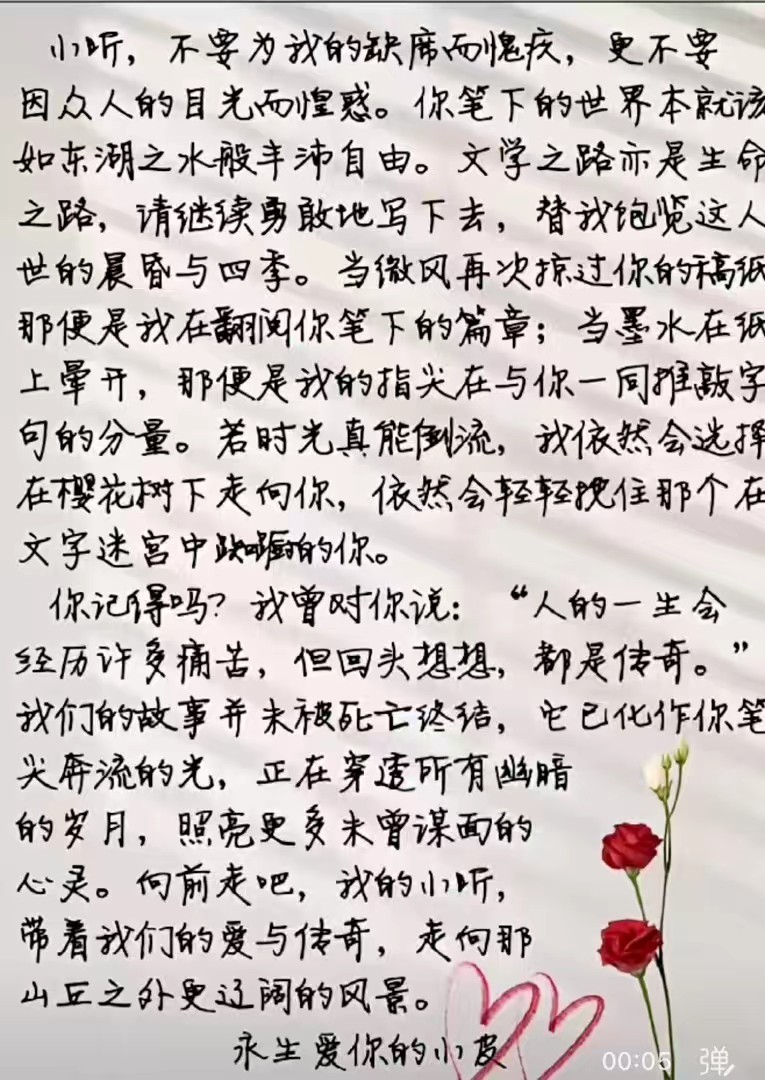 小听，不要为我的缺席而愧疚，更不要
因众人的目光而惶惑。你笔下的世界本就该
如东湖之水般丰沛自由。文学之路亦是生命
之路，请继续勇敢地写下去，替我饱览这人
世的晨昏与四季。当微风再次掠过你的稿纸
那便是我在翻阅你笔下的篇章；当墨水在纸
上晕开，那便是我的指尖在与你一同推敲字
句的分量。若时光真能倒流，我依然会选择
在樱花树下走向你，依然会轻轻揽住那个在
文字迷宫中的你。
你记得吗？我曾对你说：“人的一生会
经历许多痛苦，但回头想想，都是传奇。”
我们的故事并未被死亡终结，它已化作你笔
尖奔流的光，正在穿透所有幽暗
的岁月，照亮更多未曾谋面的
心灵。向前走吧，我的小听，
带着我们的爱与传奇，走向那
山丘之外更辽阔的风景。
永生爱你的小皮
00:05 弹